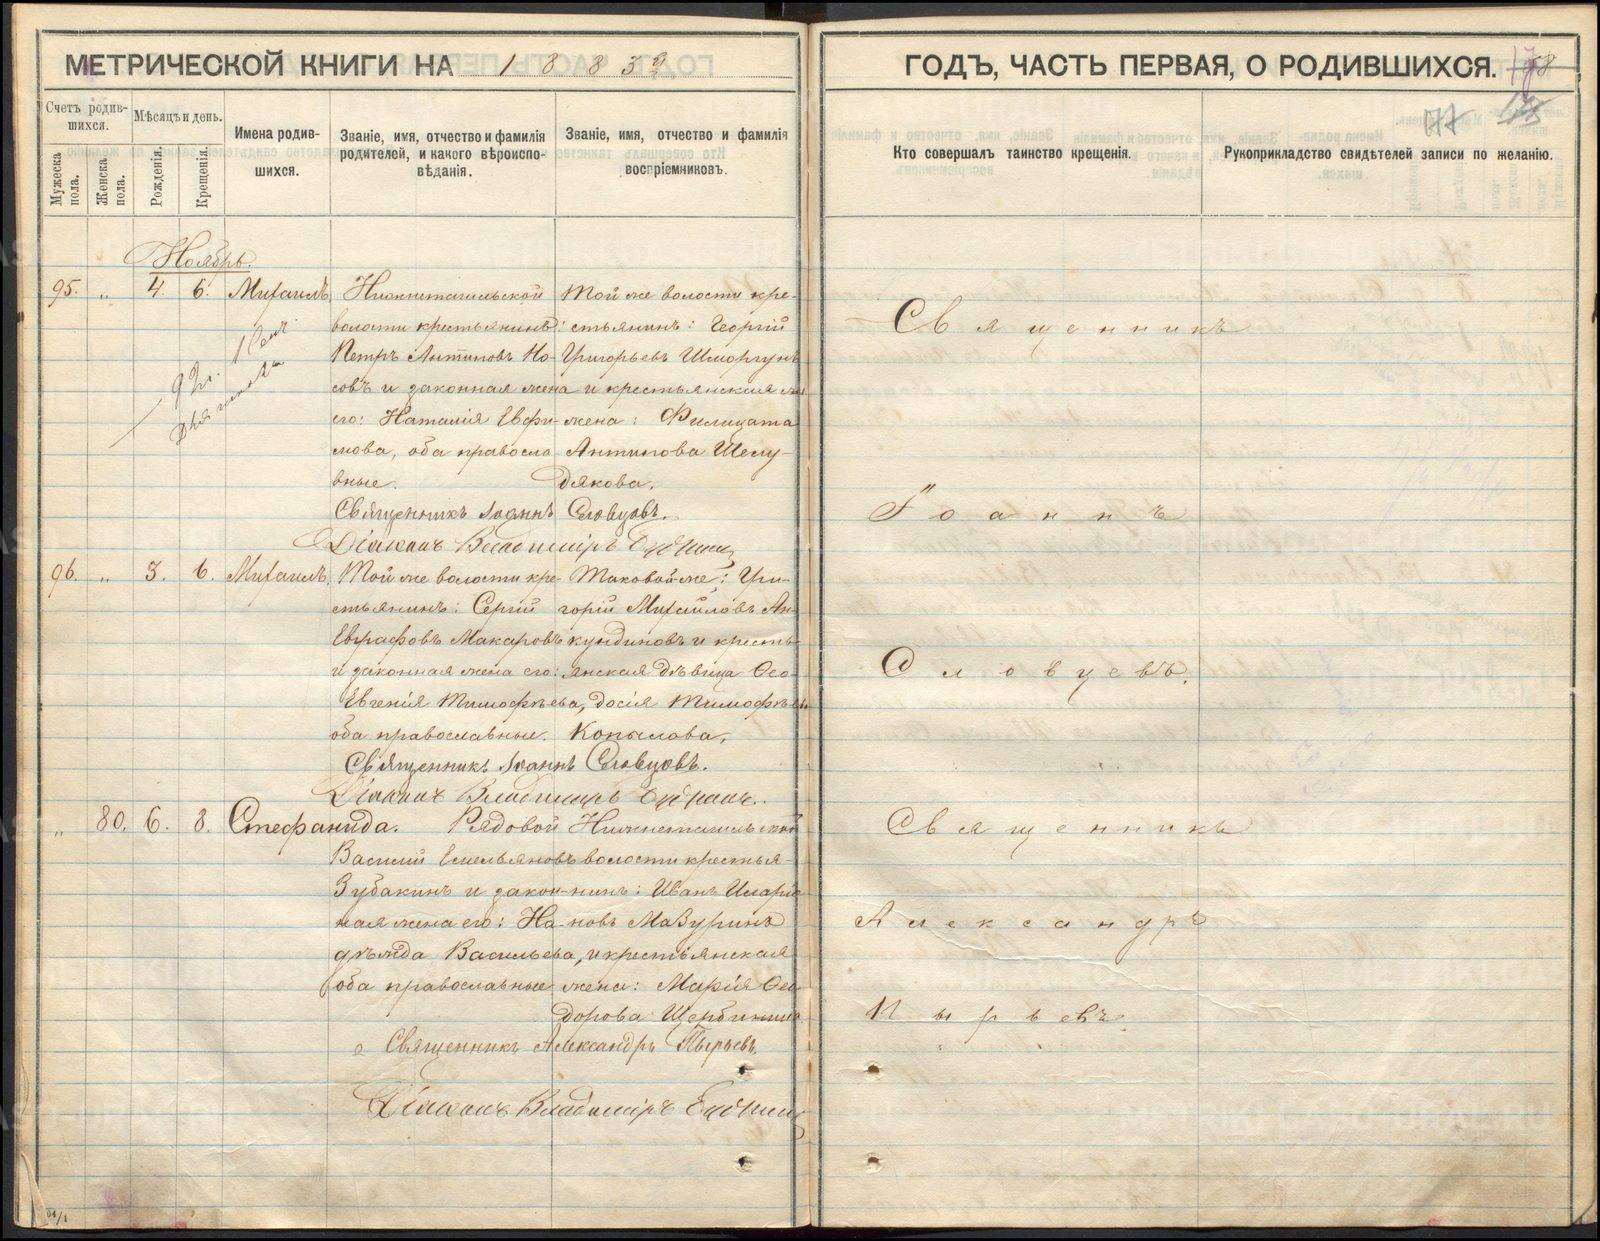 МЕТРИЧЕСКОЙ КНИГИ НА 1883
ГОДЪ, ЧАСТЬ ПЕРВАЯ, О РОДИВШИХСЯ.
Счетъ родив-
шихся.
Мѣсяцъ и день.
Мужеска
пола.
Женска
пола.
Рожденія.
Крещенія.
Имена родив-
шихся.
Званіе, имя, отчество и фамилія
родителей, и какого вѣроиспо-
вѣданія.
Званіе, имя, отчество и фамилія
воспріемниковъ.
Кто совершалъ таинство крещенія.
Рукоприкладство свидѣтелей записи по желанію.
Ноябрь.
95. „ 4. 6. Михаилъ
Нижнетагильской
волости крестьянинъ:
Петръ Антиповъ Но-
совъ и законная жена
его: Наталія Евфи-
мова, оба правосла
вные.
Той же волости кре-
стьянинъ: Георгій
Григорьевъ Шморгунъ
и крестьянская
жена: Филицата
Антипова Шелу-
дякова.
Священникъ Іоаннъ Словцовъ.
Діаконъ Владиміръ
Священникъ
Іоаннъ
Словцевъ.
96. „ 3. 6. Михаилъ.
Той же волости кре-
стьянинъ: Сергій
Евграфовъ Макаровъ
и законная жена его:
Евгенія Тимофѣева,
оба православные.
Таковой-же: Гри-
горій Михайловъ Ан-
кундиновъ и кресть-
янская дѣвица Ѳео-
досія Тимофѣева
Копылова.
Священникъ Іоаннъ Словцовъ.
Діаконъ Владиміръ
„ 80. 6. 8. Стефанида.
Рядовой
Василій Емельяновъ
Зубакинъ и закон-
ная жена его: На-
дѣжда Васильева,
оба православные
Нижнетагильской
волости крестья-
нинъ: Иванъ Иларіо
новъ Мазуринъ
и крестьянская
жена: Марія Ѳео-
дорова Щербинина
Священникъ Александръ Пырьевъ.
Діаконъ Владиміръ
Священникъ
Александръ
Пырьевъ.